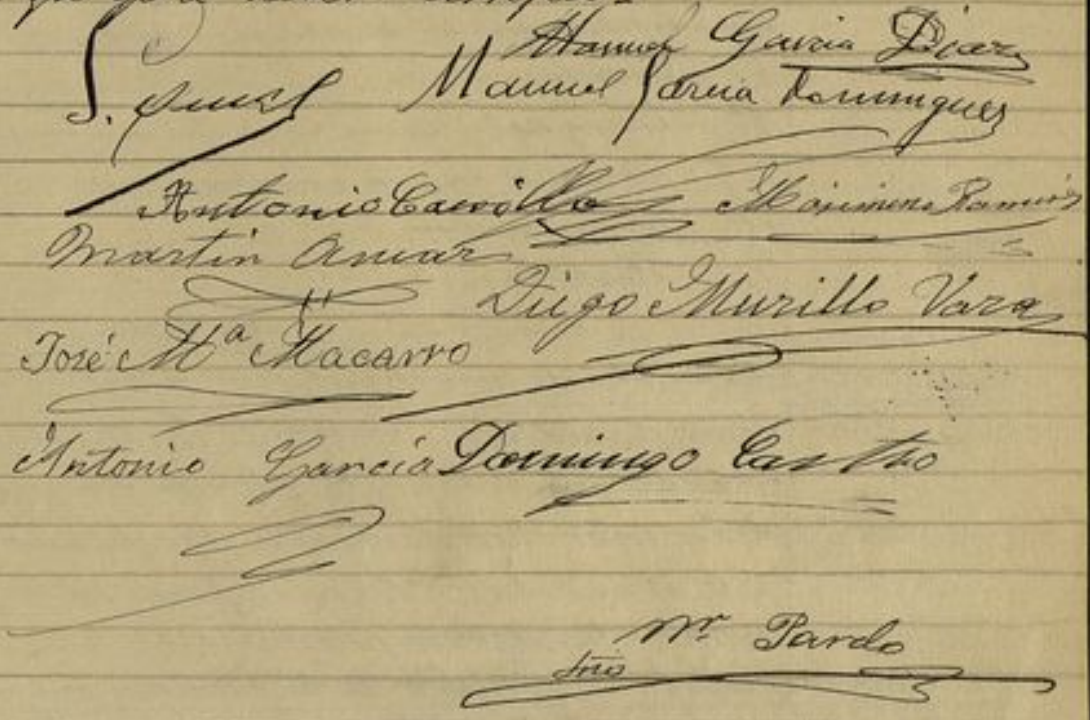 Manuel Garcia Diaz
S.
Manuel Garcia Dominguez
Antonio Carrillo Maximino Ramirez
Martin
Diego Murillo Vara
José Mª Macarro
Antonio García Domingo Castro
Mr. Pardo
Srio